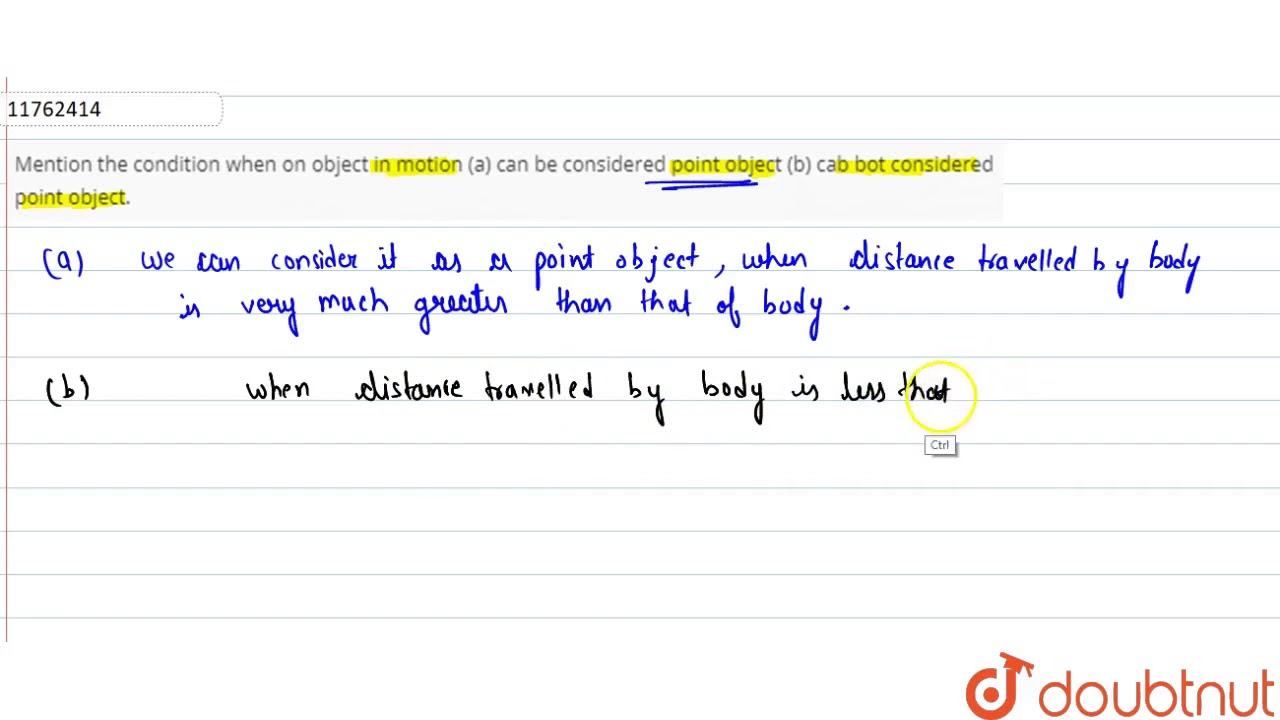 11762414
Mention the condition when on object in motion (a) can be considered point object (b) cab bot considered
point object.
(a) we can consider it as a point object, when distance travelled by body
is very much greater than that of body.
(b) when distance travelled by body is less that
Ctrl
doubtnut